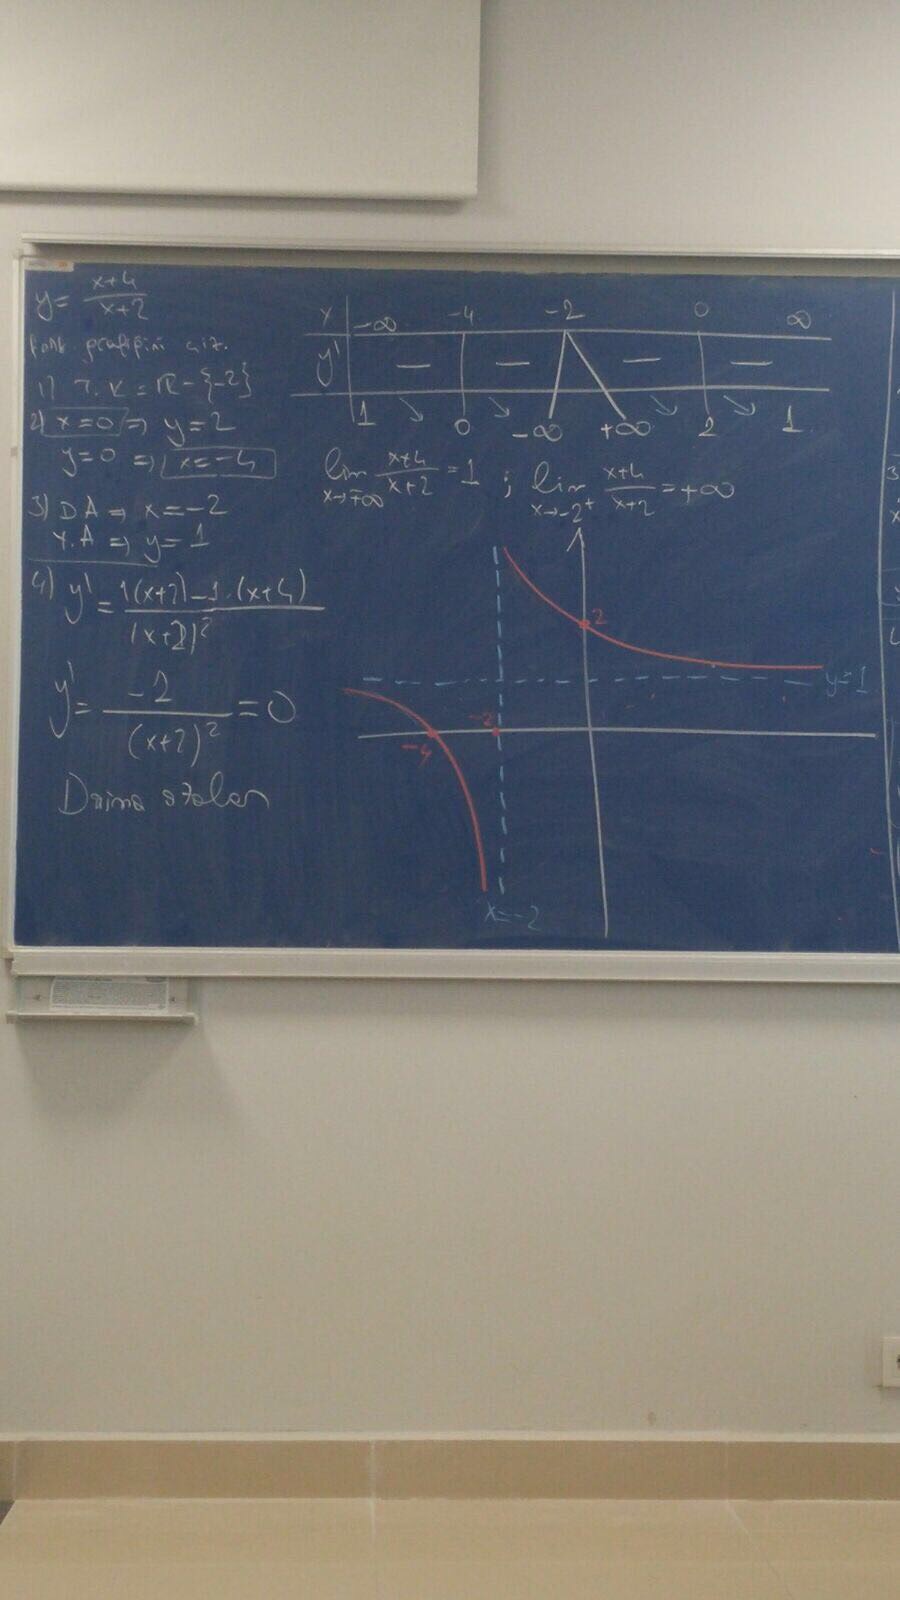 y = x+4 / x+2
fonk. grafiğini çiz.
1) T.K = R - {-2}
2) x=0 ⇒ y=2
y=0 ⇒ x=-4
3) DA ⇒ x=-2
Y.A ⇒ y=1
4) y' = 1(x+2)-1.(x+4) / (x+2)²
y' = -2 / (x+2)² = 0
Daima azalan
x -∞ -4 -2 0 ∞
y' — — — —
1 ↘ 0 ↘ -∞ +∞ ↘ 2 ↘ 1
lim x→∓∞ x+4 / x+2 = 1 ; lim x→-2⁺ x+4 / x+2 = +∞
2
y=1
-4 -2
x=-2